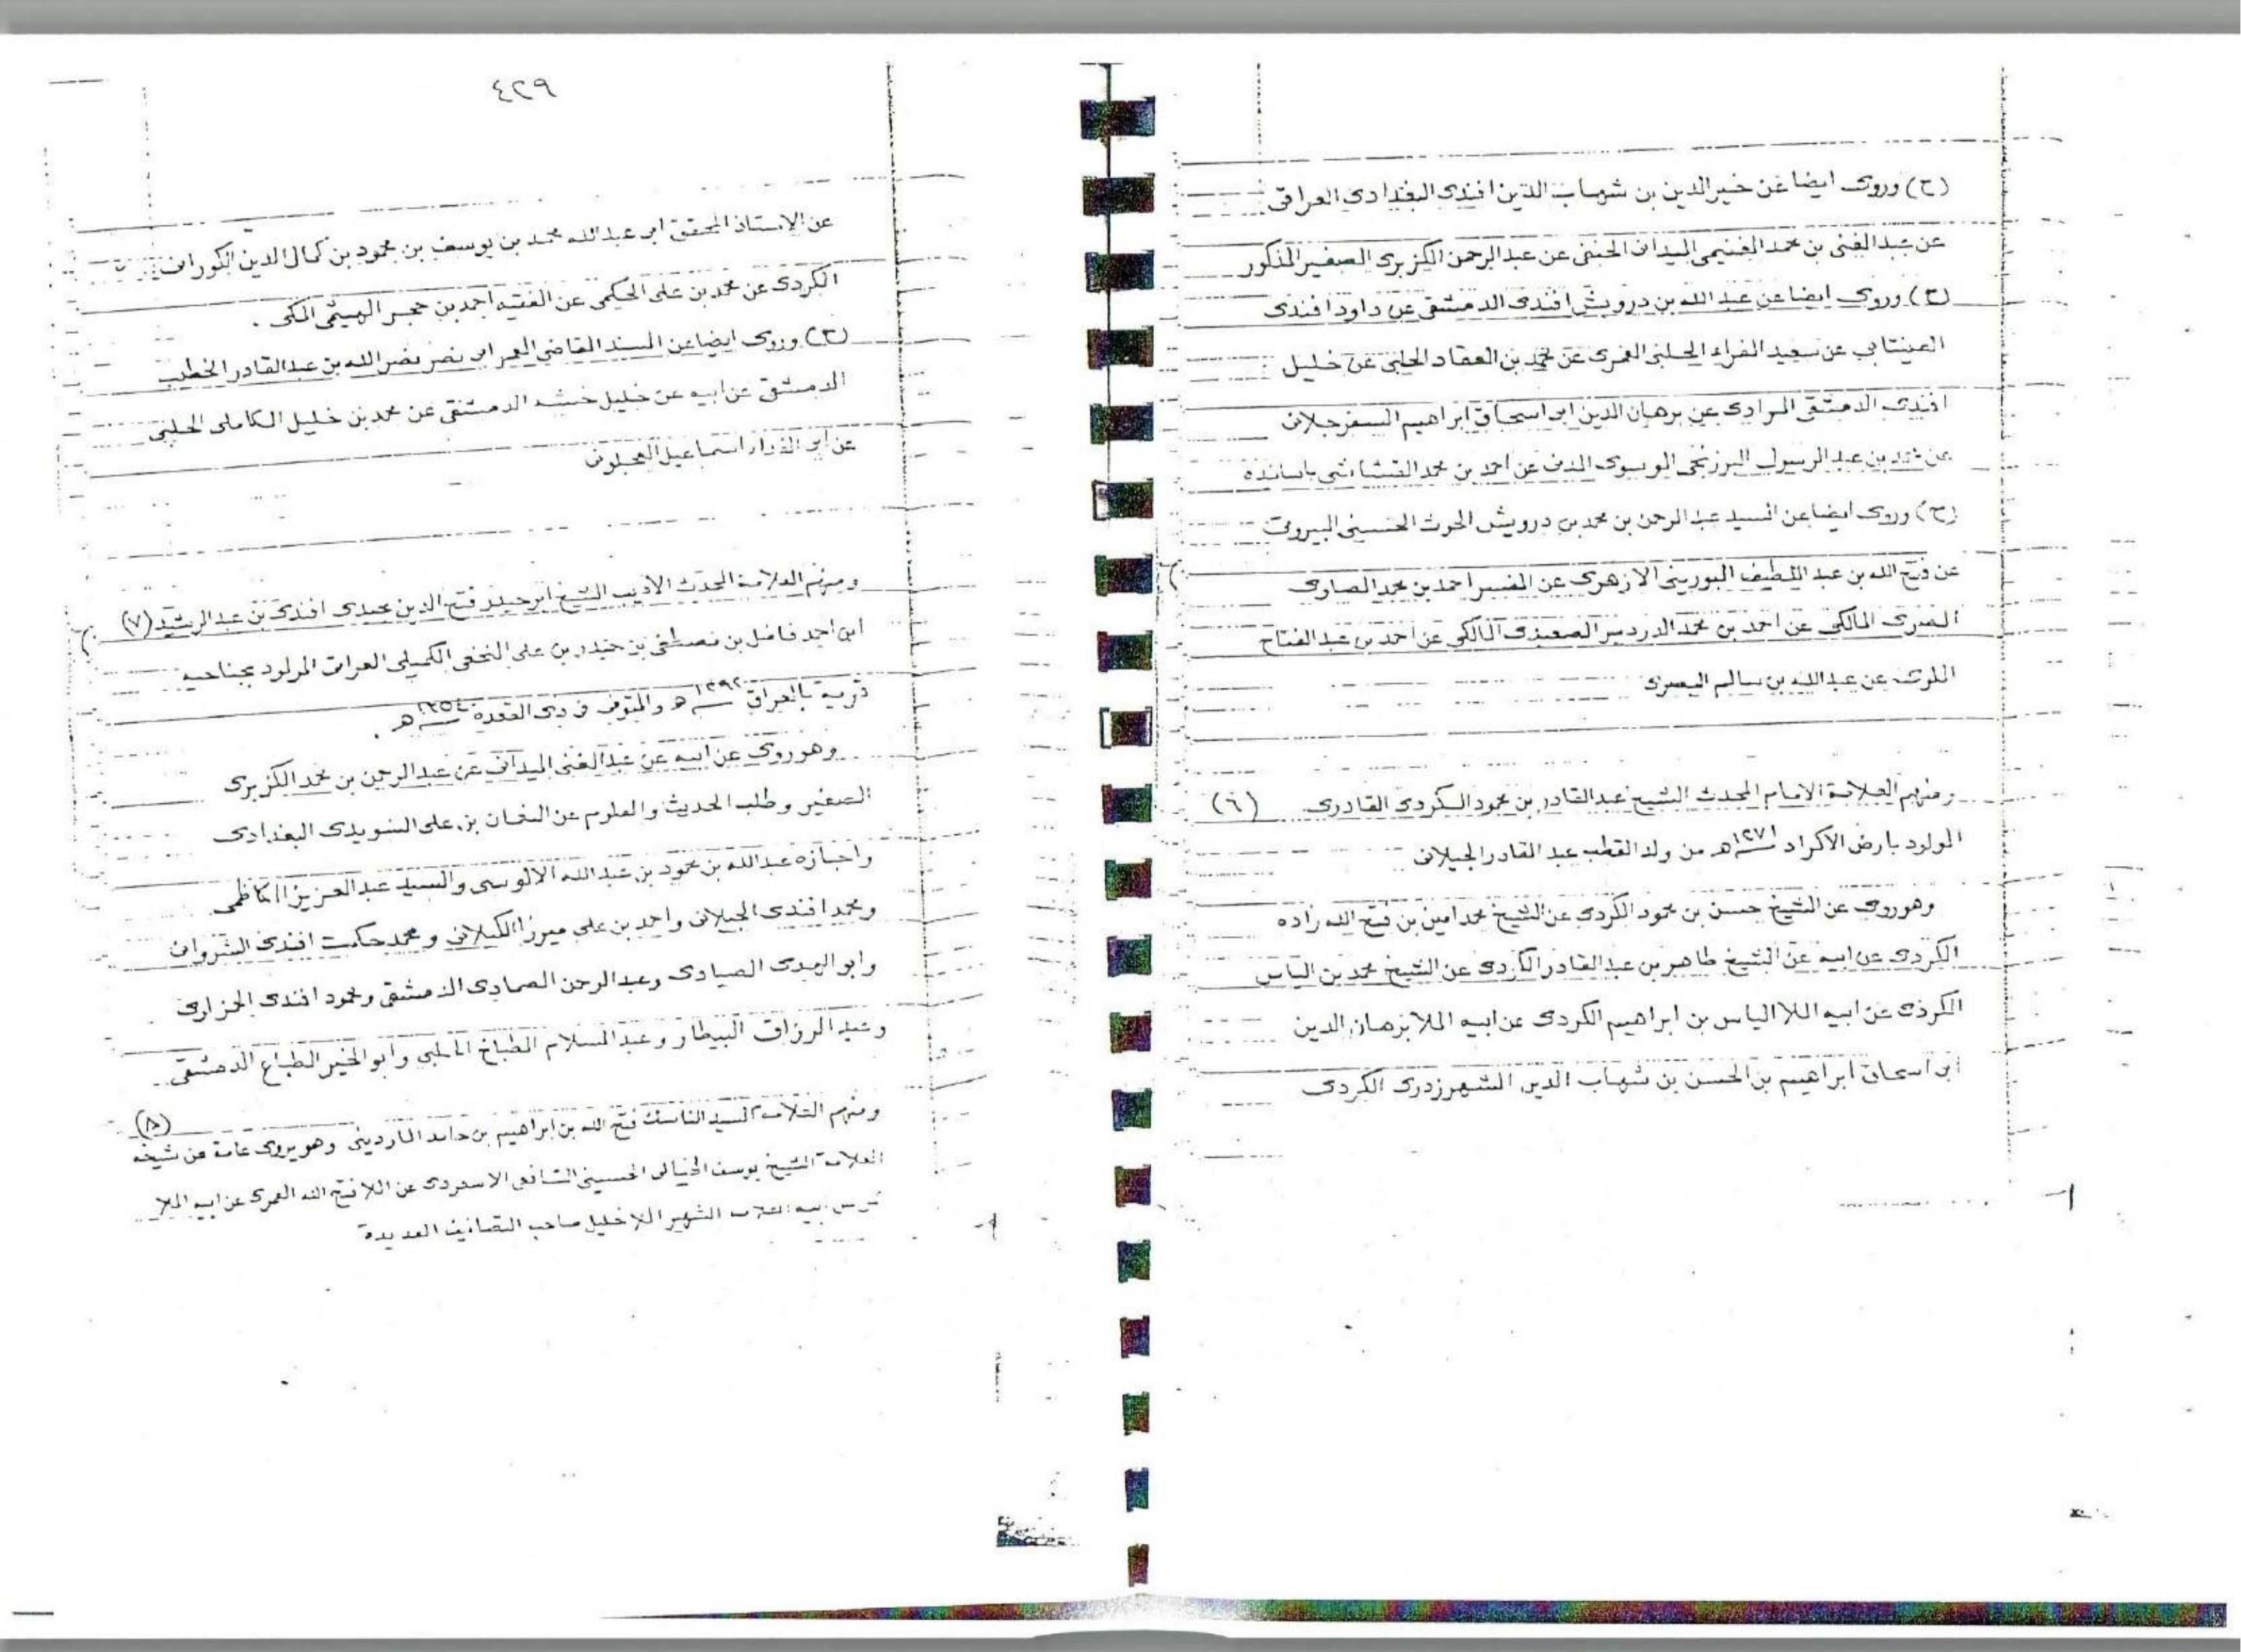 (ح) وروى ايضا عن خير الدين بن شهاب الدين افندى البغدادى العراقى
عن عبد الغنى بن محمد الغنيمى الميدانى الحنفى عن عبد الرحمن الكزبرى الصغير المذكور
(ح) وروى ايضا عن عبد الله بن درويش افندى الدمشقى عن داود افندى
العينتابى عن سعيد الفراء الحلبى العمرى عن محمد بن العقاد الحلبى عن خليل
افندى الدمشقى المرادى عن برهان الدين ابى اسحاق ابراهيم السفرجلانى
عن محمد بن عبد الرسول البرزنجى الموسوى المدنى عن احمد بن محمد القشاشى باسانده
(ح) وروى ايضا عن السيد عبد الرحمن بن محمد بن درويش الحوت الحسينى البيروتى
عن فتح الله بن عبد اللطيف البورينى الازهرى عن المفسر احمد بن محمد الصاوى
المصرى المالكى عن احمد بن محمد الدردير الصعيدى المالكى عن احمد بن عبد الفتاح
الملوى عن عبد الله بن سالم البصرى
ومنهم العلامة الامام المحدث الشيخ عبد القادر بن محمود الكردى القادرى (٦)
المولود بارض الاكراد ١٢٧١ هـ من ولد القطب عبد القادر الجيلانى
وهو روى عن الشيخ حسن بن محمود الكردى عن الشيخ محمد امين بن فتح الله زاده
الكردى عن ابيه عن الشيخ طاهر بن عبد القادر الكردى عن الشيخ محمد بن الياس
الكردى عن ابيه الملا الياس بن ابراهيم الكردى عن ابيه الملا برهان الدين
ابى اسحاق ابراهيم بن الحسن بن شهاب الدين الشهرزورى الكردى
٤٢٩
عن الاستاذ المحقق ابى عبد الله محمد بن يوسف بن محمود بن كمال الدين الكورانى
الكردى عن محمد بن على الحكمى عن الفقيه احمد بن حجر الهيثمى المكى .
(ح) وروى ايضا عن المسند القاضى المعمر ابى نصر نصر الله بن عبد القادر الخطيب
الدمشقى عن ابيه عن خليل خشه الدمشقى عن محمد بن خليل الكاملى الحلبى
عن ابى الفداء اسماعيل العجلونى
ومنهم العلامة المحدث الاديب الشيخ ابو حيدر فتح الدين عبدى افندى بن عبد الرشيد (٧)
ابن احمد فاضل بن مصطفى بن حيدر بن على النخعى الكميلى العراقى المولود بجناحيه
قرية بالعراق ١٢٩٢ هـ والمتوفى فى ذى القعدة ١٣٥٤ هـ .
وهو روى عن ابيه عن عبد الغنى الميدانى عن عبد الرحمن بن محمد الكزبرى
الصغير وطلب الحديث والعلوم عن النعمان بن على السويدى البغدادى
واجازه عبد الله بن محمود بن عبد الله الالوسى والسيد عبد العزيز الكاظمى
ومحمد افندى الجيلانى واحمد بن على ميرزا الكيلانى ومحمد حكمت افندى الشروانى
وابو الهدى الصيادى وعبد الرحمن الصمادى الدمشقى ومحمود افندى الحزاوى
وعبد الرزاق البيطار وعبد السلام الطباخ الحلبى وابو الخير الطباع الدمشقى
ومنهم العلامة السيد الناسك فتح الله بن ابراهيم بن حامد الماردينى وهو يروى عامة عن شيخه (٨)
العلامة الشيخ يوسف الخيالى الحسينى الشافعى الاسعردى عن الملا فتح الله العمرى عن ابيه الملا
عن ابيه الشهير الملا خليل صاحب التصانيف العديدة